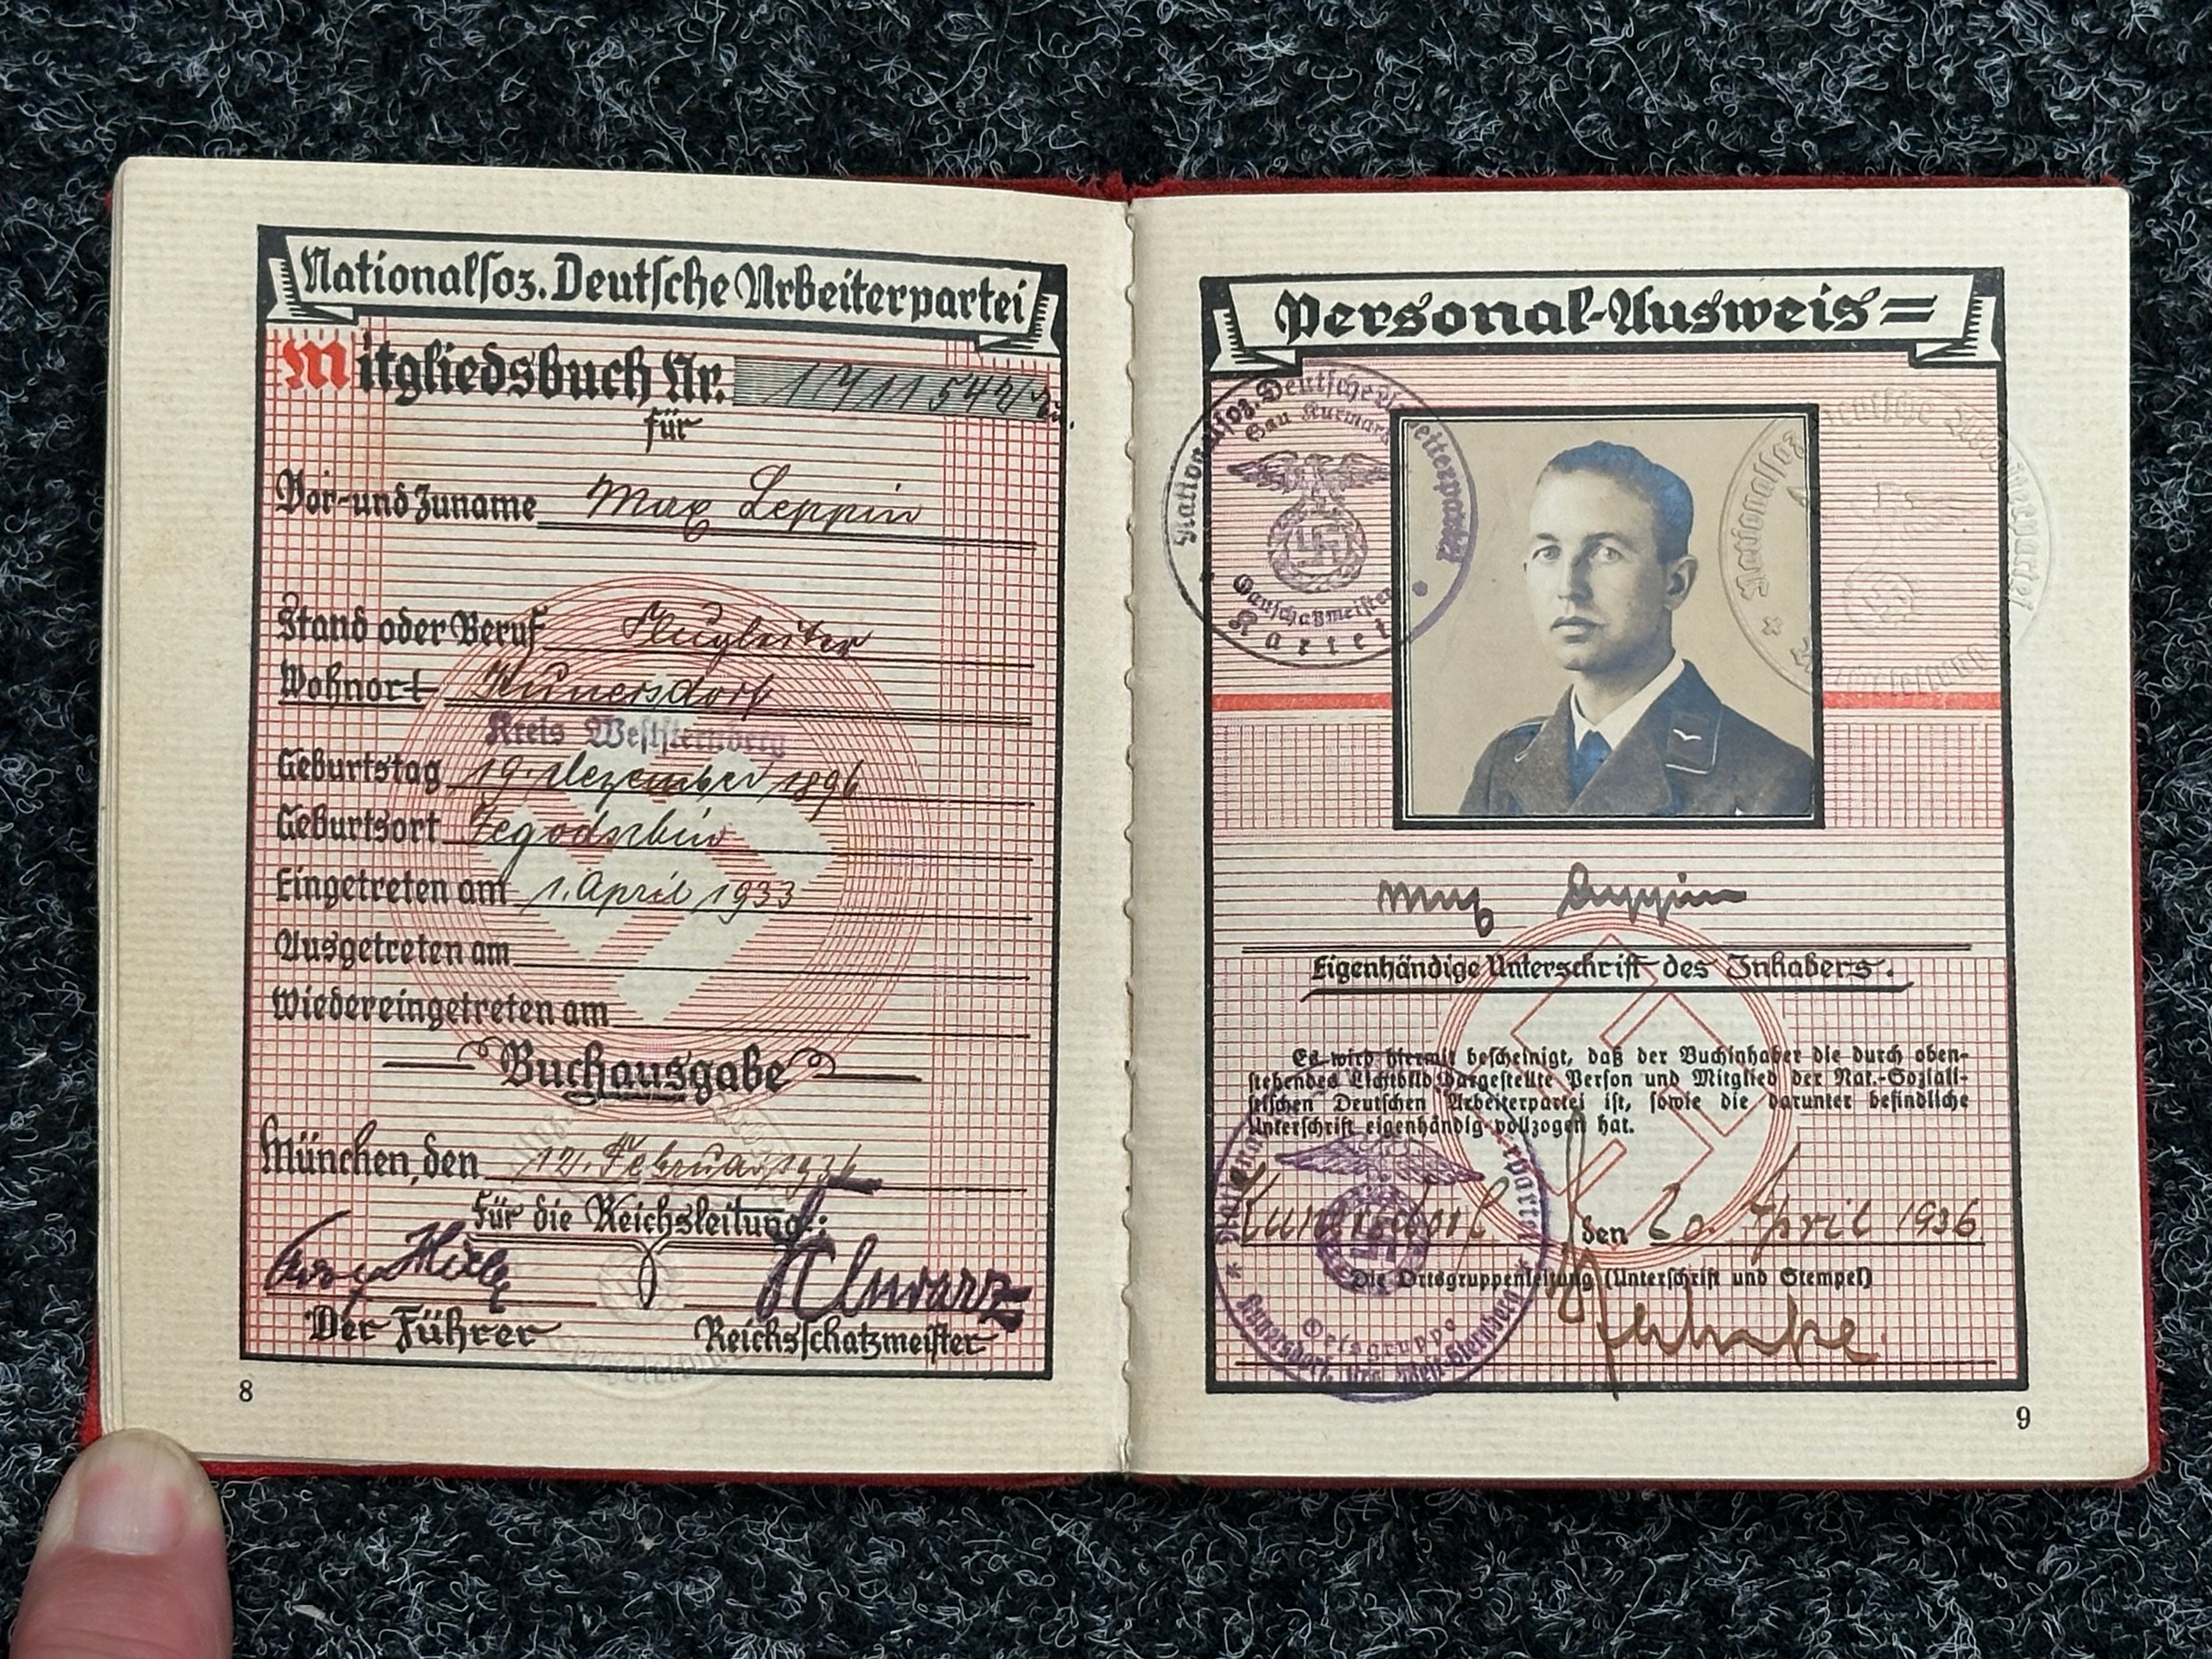 Nationalsoz. Deutsche Arbeiterpartei
Mitgliedsbuch Nr.
für
Vor- und Zuname Max Leppin
Stand oder Beruf Flugleiter
Wohnort Kunersdorf
Kreis Weststernberg
Geburtstag 19. Dezember 1896
Geburtsort
Eingetreten am 1. April 1933
Ausgetreten am
Wiedereingetreten am
Buchausgabe
München, den Februar 1936
Für die Reichsleitung:
Schwarz
Der Führer Reichsschatzmeister
8
Personal-Ausweis
Nationalsoz. Deutsche Arbeiterpartei
Gau Kurmark
Gauschatzmeister
Kartei
Max Leppin
Eigenhändige Unterschrift des Inhabers.
Es wird hiermit bescheinigt, daß der Buchinhaber die durch oben-
stehendes Lichtbild dargestellte Person und Mitglied der Nat.-Soziali-
stischen Deutschen Arbeiterpartei ist, sowie die darunter befindliche
Unterschrift eigenhändig vollzogen hat.
Kunersdorf den 20. April 1936
Die Ortsgruppenleitung (Unterschrift und Stempel)
Ortsgruppe
Kunersdorf, Krs. West-Sternberg
9